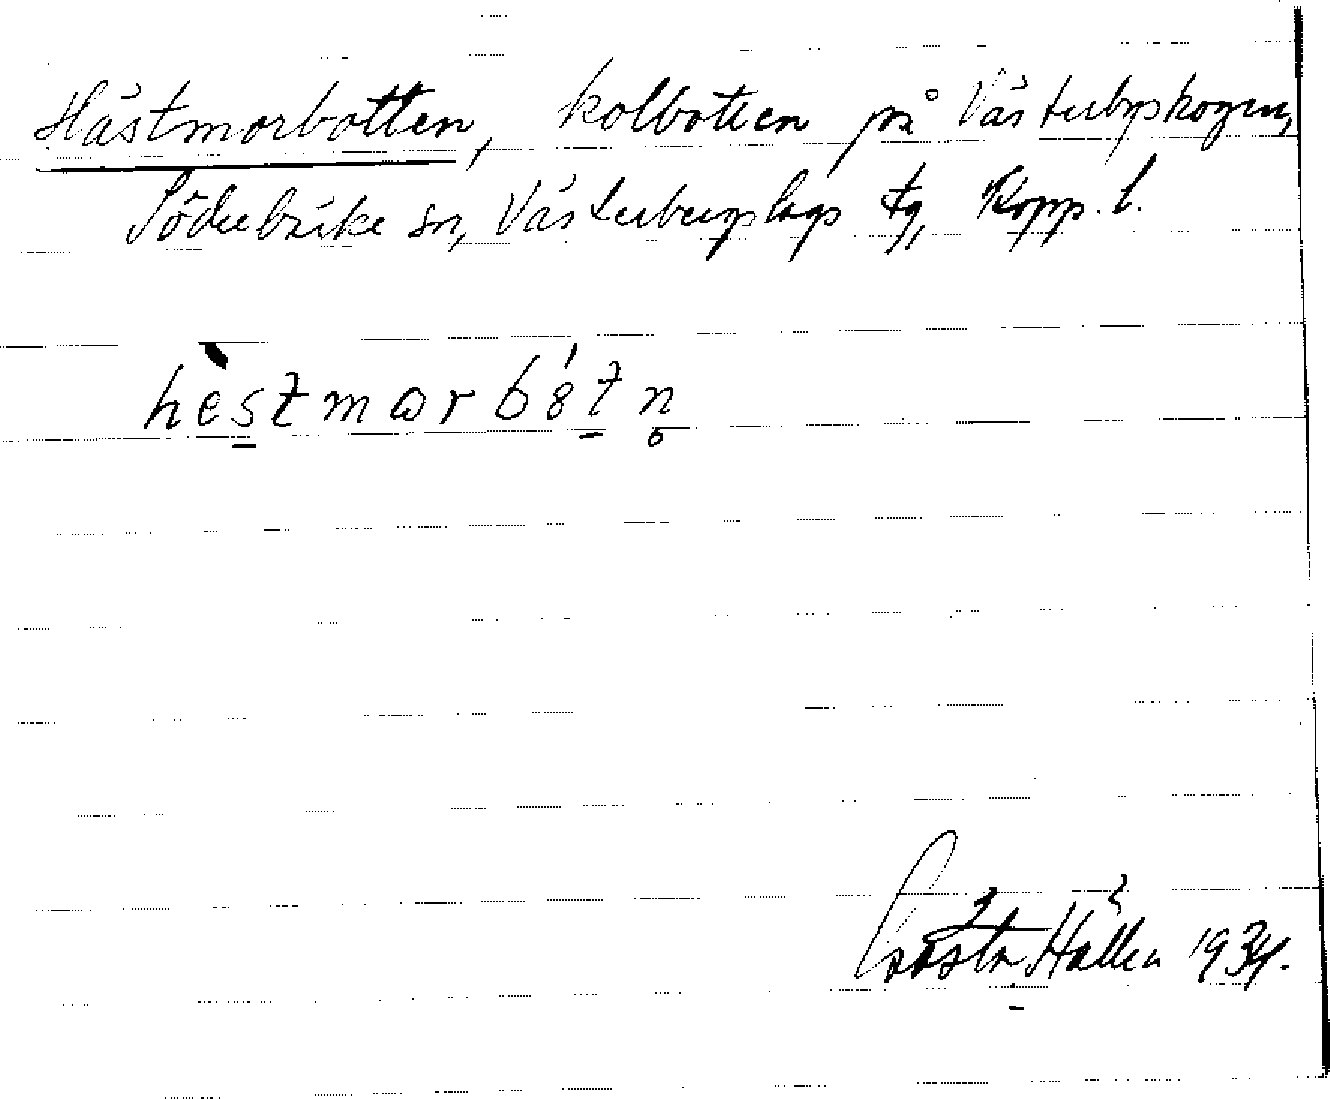 Hästmorbotten, kolbotten på Västerbyskogen,
Söderbärke sn, Västerbergslags tg, Kopp. l.
hèstmωrbótn̥
Gösta Hållén 1934.